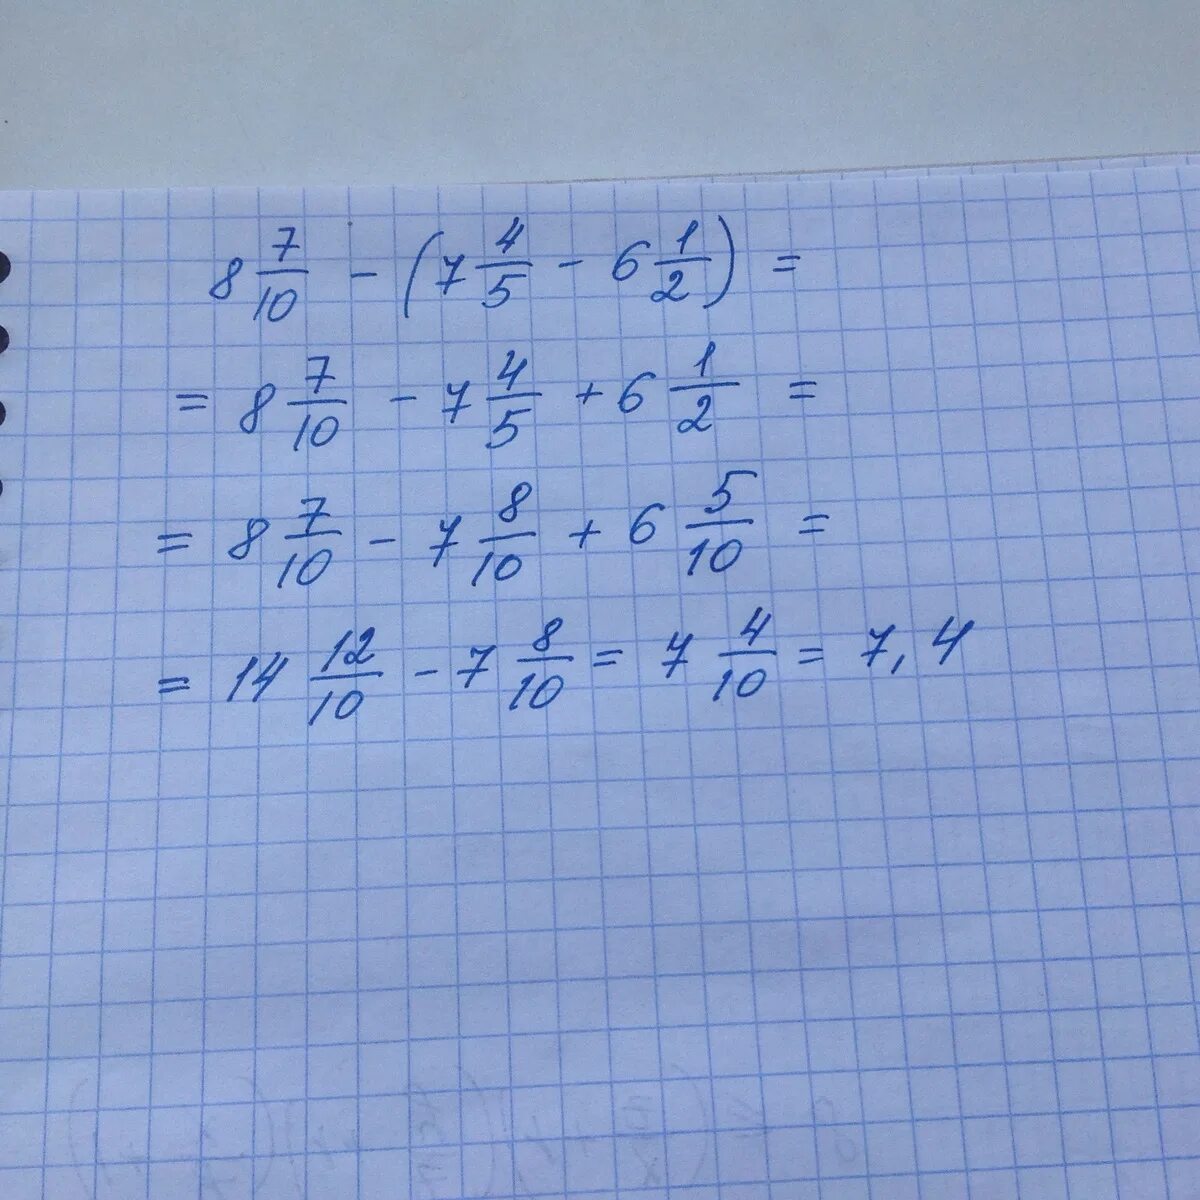 8 7/10 - (7 4/5 - 6 1/2) =
= 8 7/10 - 7 4/5 + 6 1/2 =
= 8 7/10 - 7 8/10 + 6 5/10 =
= 14 12/10 - 7 8/10 = 7 4/10 = 7,4